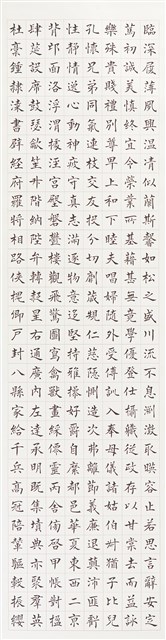 臨深履薄夙興溫凊似蘭斯馨如松之盛川流不息淵澄取映容止若思言辭安定
篤初誠美慎終宜令榮業所基籍甚無竟學優登仕攝職從政存以甘棠去而益詠
樂殊貴賤禮別尊卑上和下睦夫唱婦隨外受傅訓入奉母儀諸姑伯叔猶子比兒
孔懷兄弟同氣連枝交友投分切磨箴規仁慈隱惻造次弗離節義廉退顛沛匪虧
性靜情逸心動神疲守真志滿逐物意移堅持雅操好爵自縻都邑華夏東西二京
背邙面洛浮渭據涇宮殿盤鬱樓觀飛驚圖寫禽獸畫綵僊靈丙舍傍啟甲帳對楹
肆筵設席鼓瑟吹笙升階納陛弁轉疑星右通廣內左達承明既集墳典亦聚羣英
杜稾鍾隸漆書壁經府羅將相路俠槐卿戶封八縣家給千兵高冠陪輦驅轂振纓